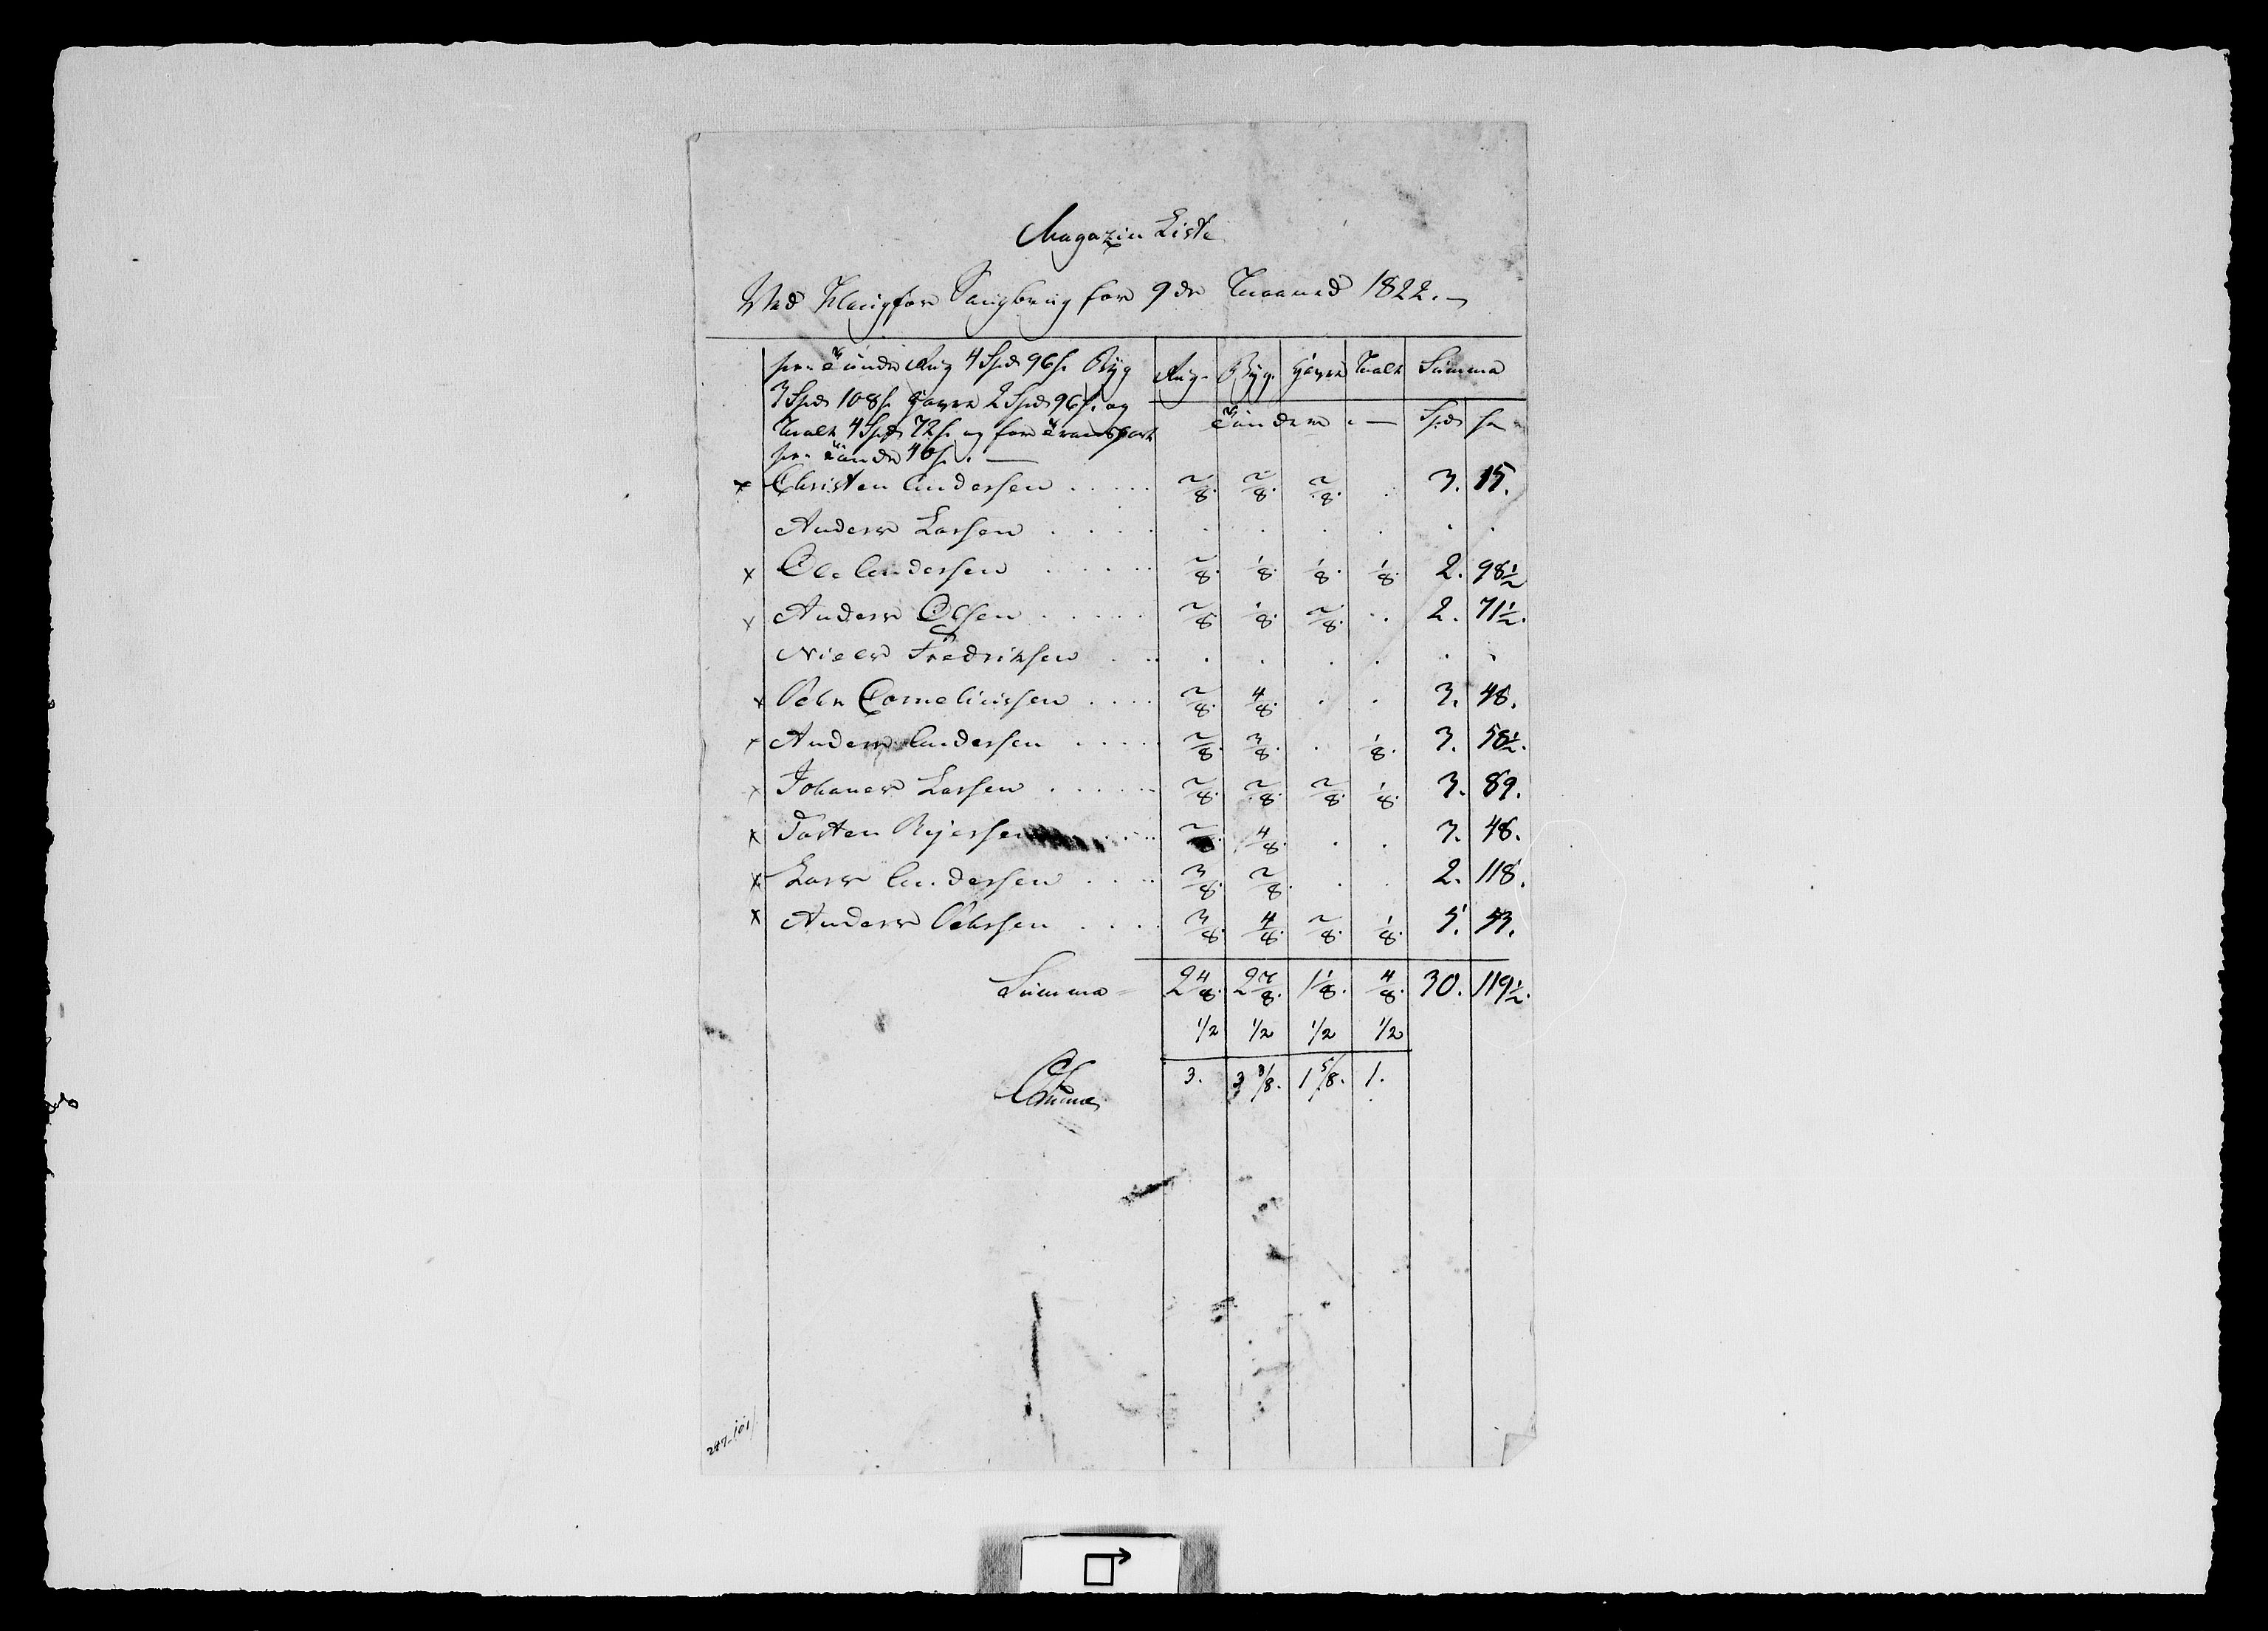 Magazin Liste
Ved Klevfos Saugbrug for 9de Maaned 1822.
pr. Tønde Rug 4 Spd 96 s. Byg
3 Spd 108 s. Havre 2 Spd 96 s. og
Malt 4 Spd 72 s. og for Transport
pr. Tønde 40 s. —
Rug. Byg. Havre Malt Summa
Tønder. — Spd s.
x Christen Andersen . . . . . 2/8. 2/8. 2/8. . 3. 15.
Anders Larsen . . . . . . . . . .
x Ole Andersen . . . . . 2/8. 1/8. 1/8. 1/8. 2. 98 1/2
x Anders Olsen . . . . . 2/8 1/8. 2/8. . 2. 71 1/2.
Niels Fredriksen . . . . . . . . .
x Peder Corneliussen . . . . 2/8. 4/8. . . 3. 48.
x Anders Andersen . . . . . 2/8. 3/8. . 1/8. 3. 58 1/2.
x Johanes Larsen . . . . . 2/8. 2/8. 2/8. 1/8. 3. 89.
x Tosten . . . . 2/8. 4/8. . . 3. 48.
x Lars Andersen . . . . 3/8. 2/8. . . 2. 118.
x Anders Pedersen . . . . 3/8. 4/8. 2/8. 1/8. 5. 53.
Summa 2 4/8. 2 7/8. 1 1/8. 4/8. 30. 119 1/2.
1/2 1/2 1/2 1/2
3. 3 3/8. 1 5/8. 1.
247-101